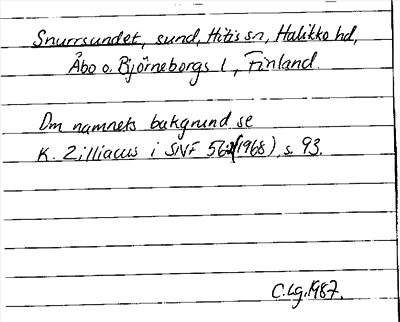 Snurrsundet, sund, Hitis sn, Halikko hd,
Åbo o. Björneborgs l, Finland
Om namnets bakgrund se
K. Zilliacus i SNF 56 (1968), s. 93.
C.Lg. 1987.